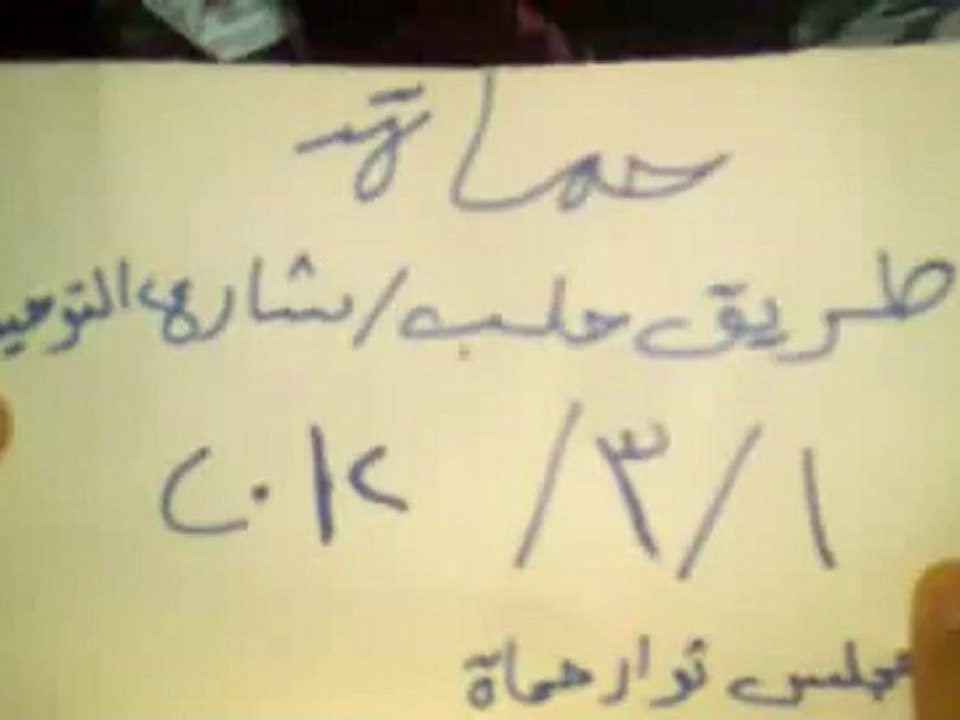 حماة
طريق حلب / شارع التوحيد
١ / ٣ / ٢٠١٢
مجلس ثوار حماة